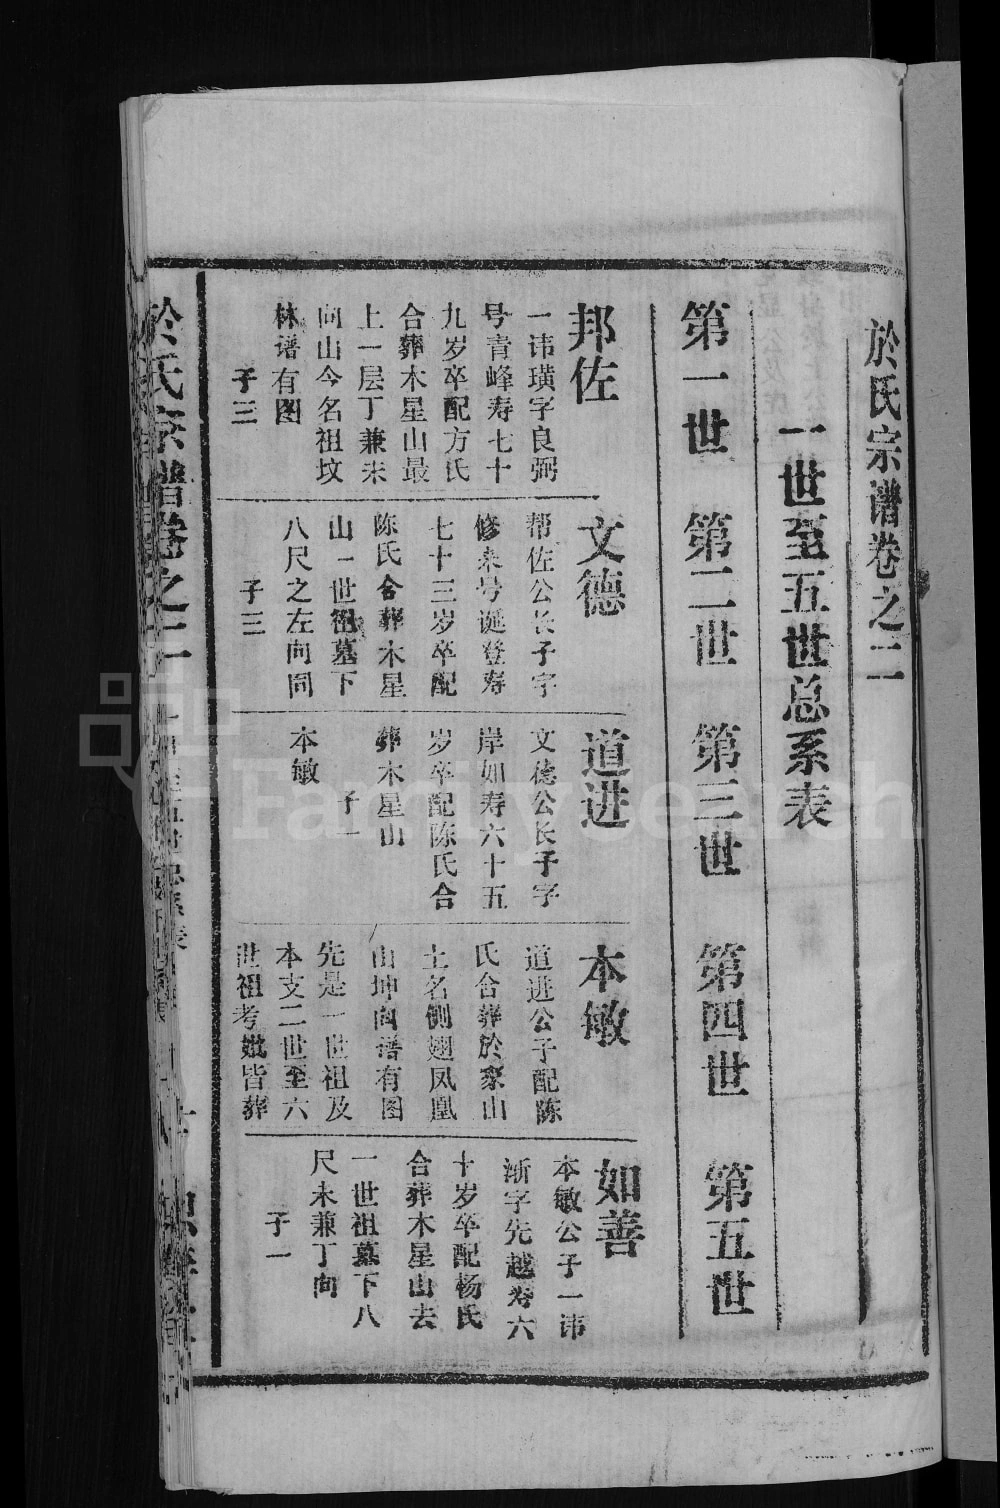 於氏宗谱卷之二
一世至五世总系表
第一世
第二世
第三世
第四世
第五世
邦佐
一讳璜字良弼
号青峰寿七十
九岁卒配方氏
合葬木星山最
上一层丁兼未
向山今名祖坟
林谱有图
子三
文德
帮佐公长子字
修来号诞登寿
七十三岁卒配
陈氏合葬木星
山一世祖墓下
八尺之左向同
子三
道进
文德公长子字
岸如寿六十五
岁卒配陈氏合
葬木星山
子一
本敏
本敏
道进公子配陈
氏合葬於家山
土名侧翅凤凰
山坤向谱有图
先是一世祖及
本支二世至六
世祖考妣皆葬
如善
本敏公子一讳
渐字先越寿六
十岁卒配杨氏
合葬木星山去
一世祖墓下八
尺未兼丁向
子一
於氏宗谱卷之二
FamilySearch